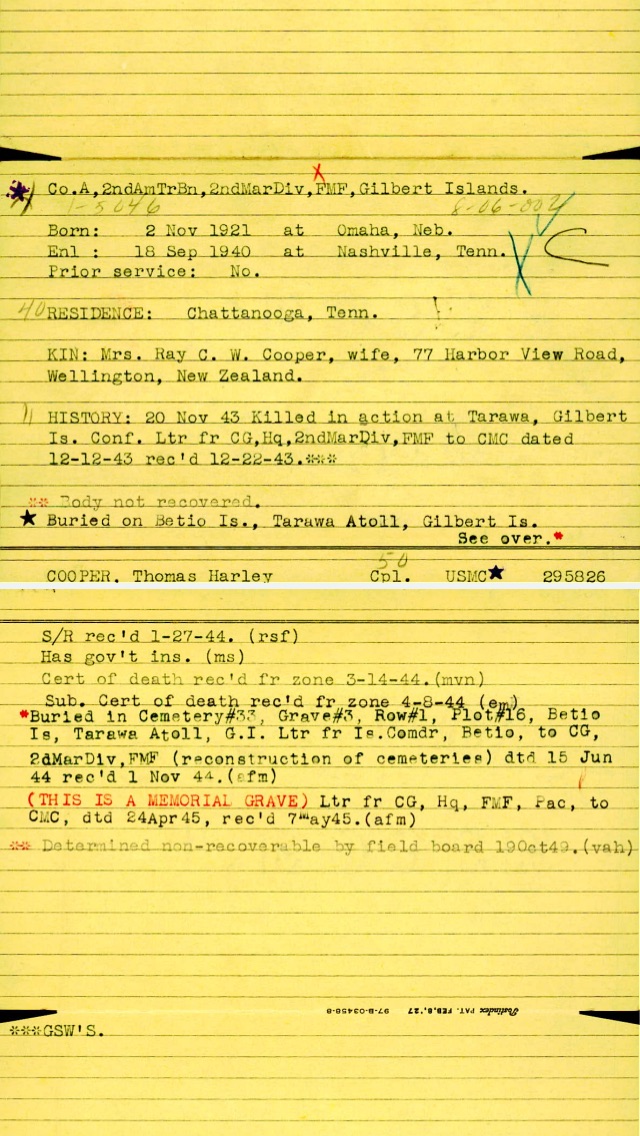 ★ Co.A,2ndAmTrBn,2ndMarDiv,FMF,Gilbert Islands.
x
1-5046
Born: 2 Nov 1921 at Omaha, Neb.
Enl : 18 Sep 1940 at Nashville, Tenn.
Prior service: No.
40 RESIDENCE: Chattanooga, Tenn.
KIN: Mrs. Ray C. W. Cooper, wife, 77 Harbor View Road,
Wellington, New Zealand.
11 HISTORY: 20 Nov 43 Killed in action at Tarawa, Gilbert
Is. Conf. Ltr fr CG,Hq,2ndMarDiv,FMF to CMC dated
12-12-43 rec'd 12-22-43.***
** Body not recovered.
★ Buried on Betio Is., Tarawa Atoll, Gilbert Is.
See over.*
50
COOPER, Thomas Harley Cpl. USMC★ 295826
S/R rec'd 1-27-44. (rsf)
Has gov't ins. (ms)
Cert of death rec'd fr zone 3-14-44.(mvn)
Sub. Cert of death rec'd fr zone 4-8-44 (em)
*Buried in Cemetery#33, Grave#3, Row#1, Plot#16, Betio
Is, Tarawa Atoll, G.I. Ltr fr Is.Comdr, Betio, to CG,
2dMarDiv,FMF (reconstruction of cemeteries) dtd 15 Jun
44 rec'd 1 Nov 44.(afm)
(THIS IS A MEMORIAL GRAVE) Ltr fr CG, Hq, FMF, Pac, to
CMC, dtd 24Apr45, rec'd 7May45.(afm)
** Determined non-recoverable by field board 19Oct49.(vah)
Postindex PAT. FEB,8,'27 97-B-03458-8
***GSW'S.